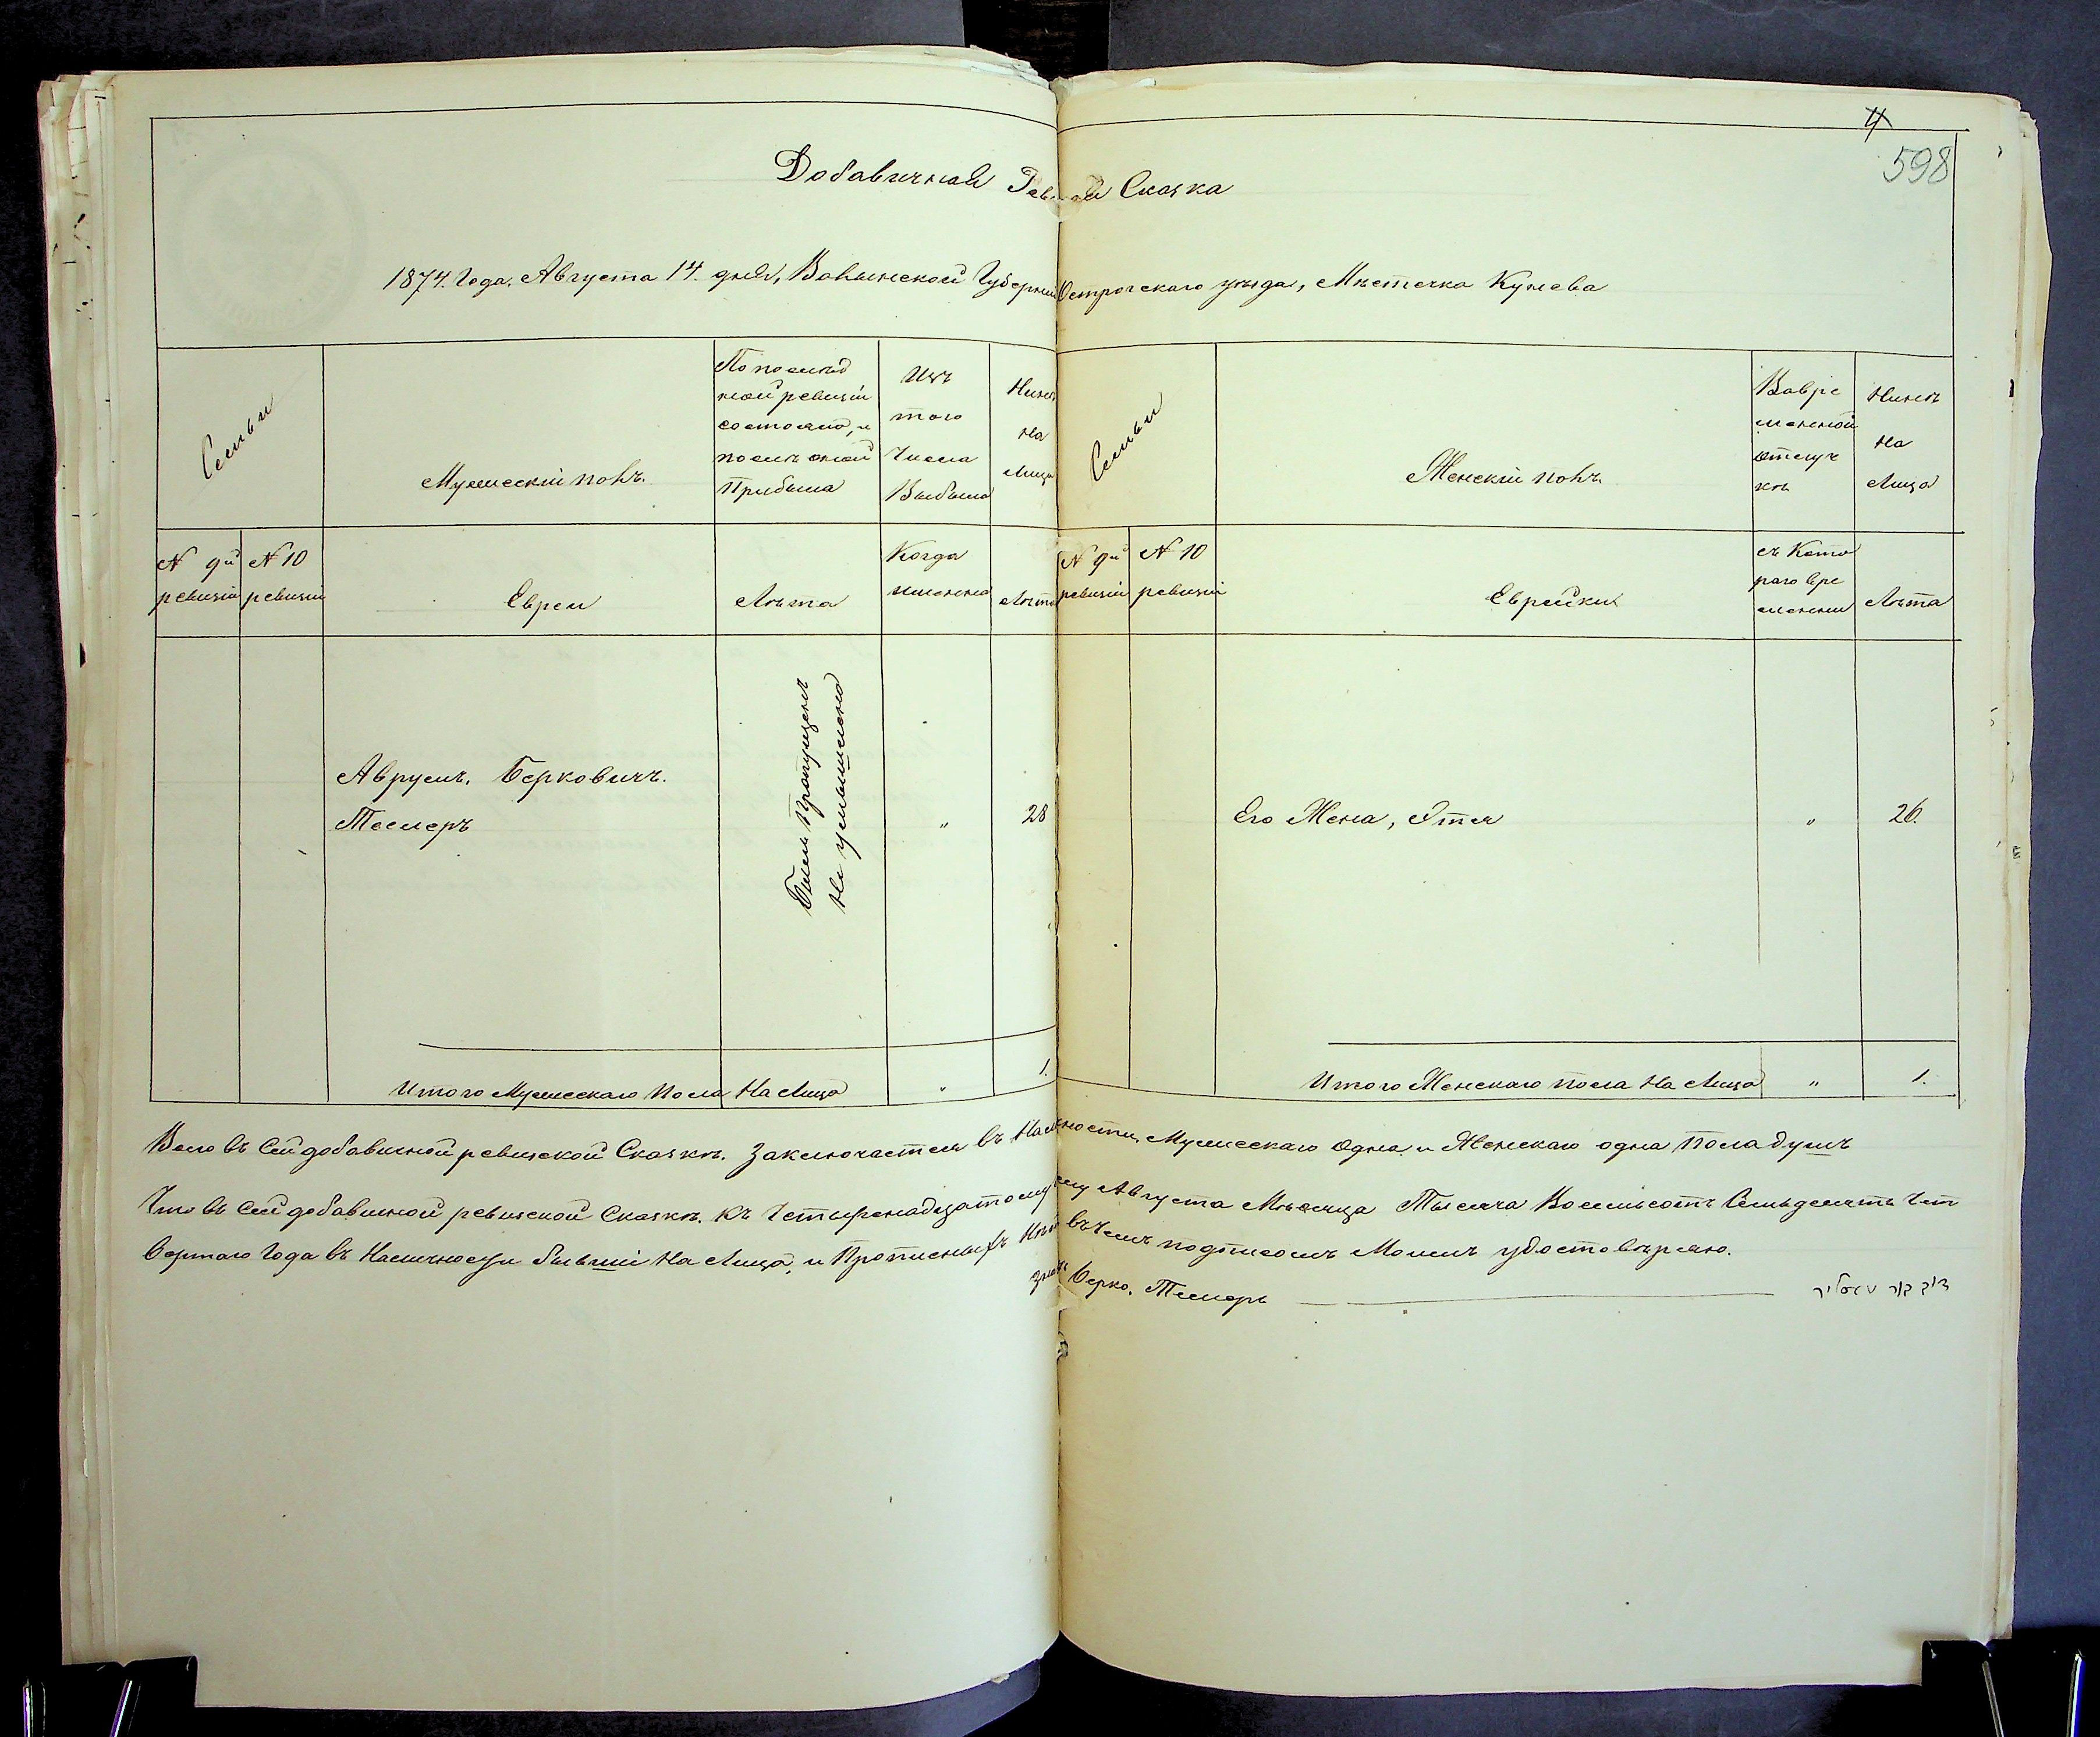 4
598
Добавичная Рев ая Сказка
1874. Года. Августа 14. дня, Волынской Губерніи Острогскаго уѣзда, Мѣстечка Кунева
Семьи
Мужескій полъ.
По послѣд
ней ревизіи
состояло, и
послѣ оной
Прибыла
Изъ
того
Числа
Выбыло
Нинѣ
На
Лицо
Семьи
Женскій полъ.
Вовре
менной
отлуч
кѣ
Нинѣ
На
Лицо
№ 9й
ревизіи
№ 10
ревизіи
Евреи
Лѣта
Когда
именно
Лѣта
№ 9й
ревизіи
№ 10
ревизіи
Еврейки
съ Кото
раго вре
мении
Лѣта
Аврумъ. Берковичъ.
Темеръ
Былъ Пропущенъ
Не умышлено
„ 28
Его Жена, Этля
„ 26.
Итого Мужескаго Пола На Лицо „ 1.
Итого Женскаго пола На Лицо „ 1.
Всего въ Сей добавичной ревизской Сказкѣ. Заключается въ Наличности, Мужескаго Одна и Женскаго одна Пола душъ
Что въ Сей добавичной ревизской Сказкѣ. Къ Четырнадцатому Августа Мѣсяца Тысяча Восемьсотъ Семьдесятъ Чет
вертаго Года въ Наличносги бывшіи На Лицо, и Прописныхъ въ чемъ подписомъ Моимъ удостовѣряю.
Берко. Темеръ